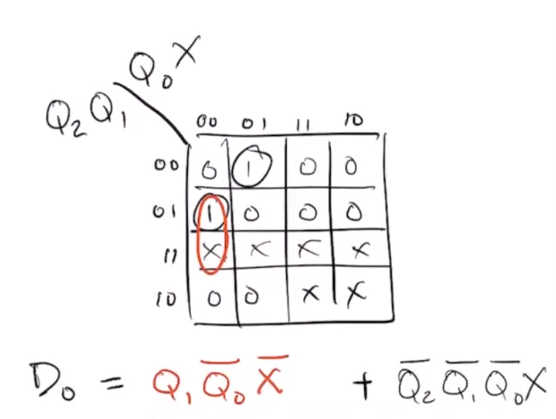 Q₀X
Q₂Q₁
00 01 11 10
00 0 1 0 0
01 1 0 0 0
11 X X X X
10 0 0 X X
D₀ = Q₁ Q̅₀ X̅ + Q̅₂ Q̅₁ Q̅₀ X